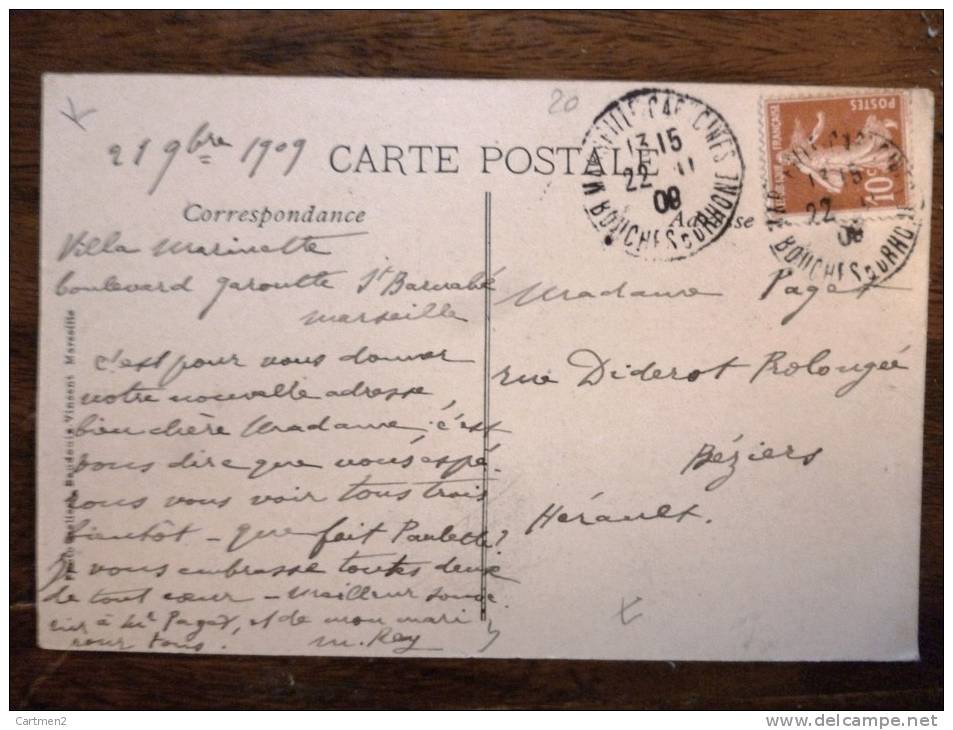 20
21 9bre 1909
CARTE POSTALE
MARSEILLE CAPUCINES
13 15
22 11
09
BOUCHES DU RHONE
POSTES
10c
Correspondance
Adresse
Villa Marinette
boulevard Garoutte St Barnabé
Marseille
c'est pour vous donner
notre nouvelle adresse,
bien chère Madame, c'est
vous dire que nous espé-
rons vous voir tous trois
bientôt - que fait Paulette?
Je vous embrasse toutes deux
de tout coeur - Meilleur souve-
nir à Mr Pagès, et de mon mari
pour tous.
M. Rey
Madame Pagès
rue Diderot Prolongée
Béziers
Hérault.
Baudouin Vincent Marseille
Cartmen2
http://www.delcampe.net